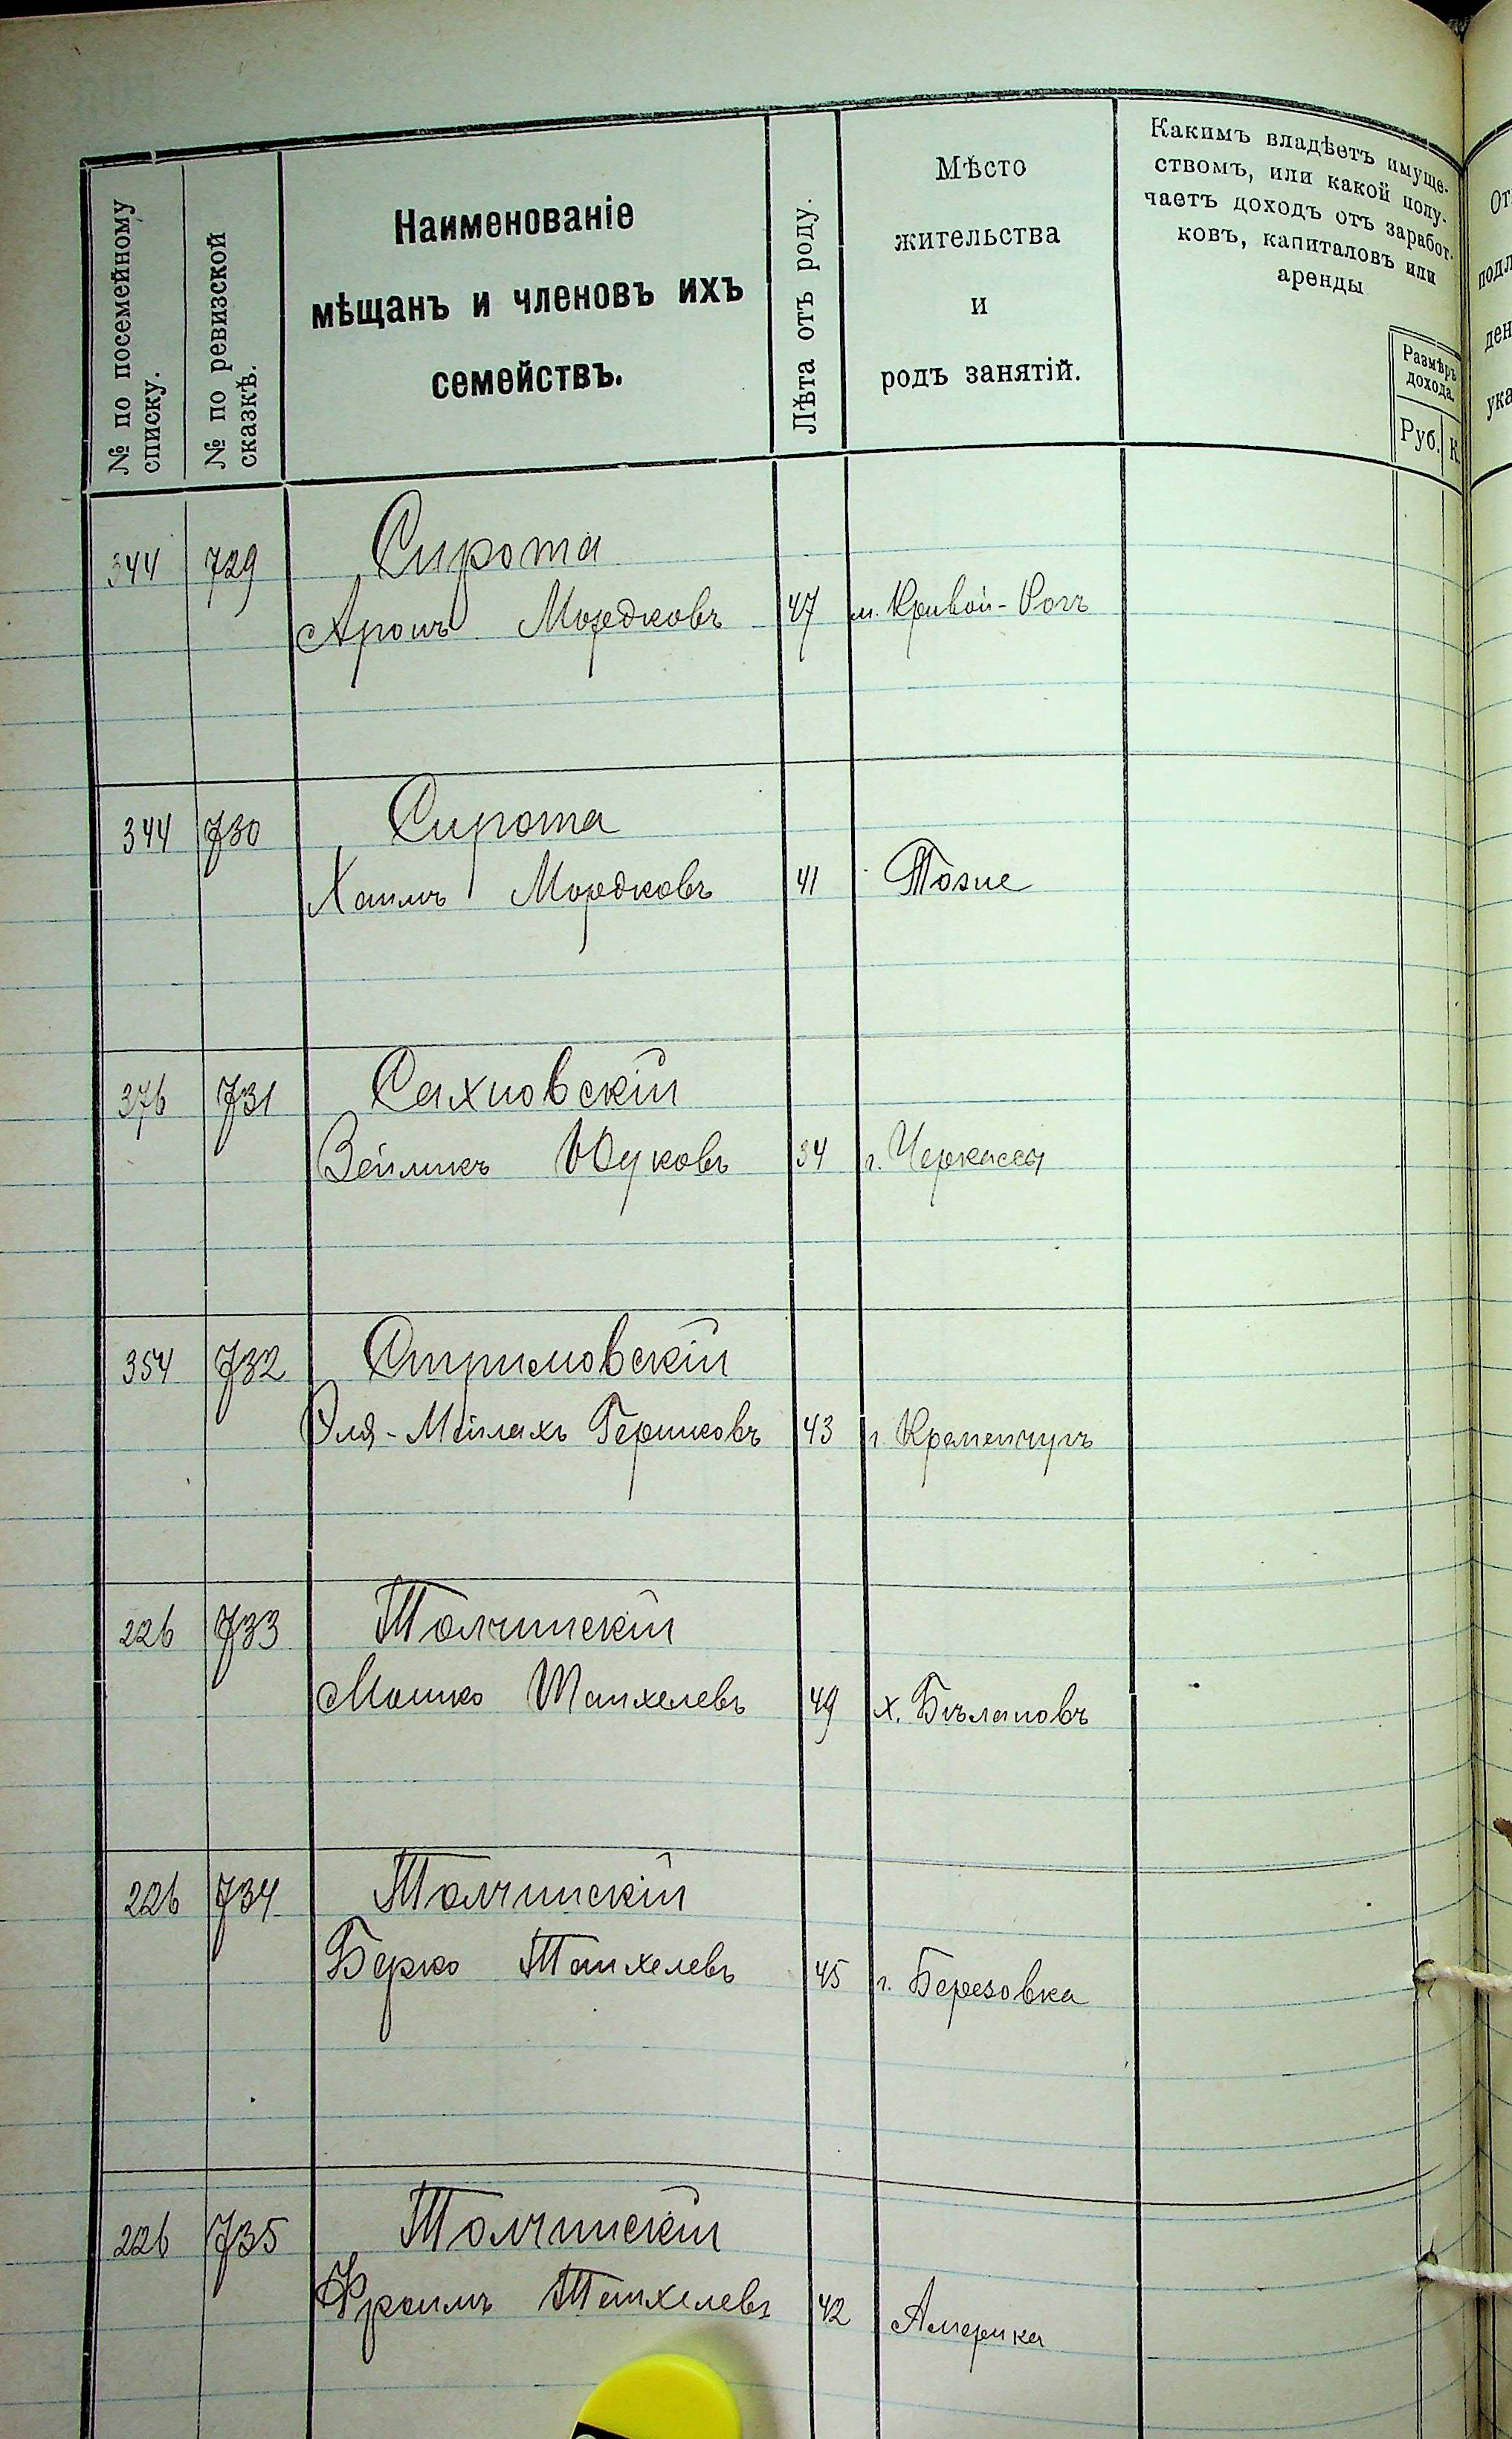 № по посемейному
списку.
№ по ревизской
сказкѣ.
Наименованіе
мѣщанъ и членовъ ихъ
семействъ.
Лѣта отъ роду.
Мѣсто
жительства
и
родъ занятій.
Какимъ владѣетъ имуще-
ствомъ, или какой полу-
чаетъ доходъ отъ заработ-
ковъ, капиталовъ или
аренды
Размѣръ
дохода.
Руб. К.
344 729 Сирота
Аронъ Мордковъ 47 м. Кривой-Рогъ
344 730 Сирота
Хаимъ Мордковъ 41 Тоже
376 731 Сахновскій
Зейликъ Юуковъ 34 г. Черкассы
354 732 Стримовскій
Эля-Мейлахъ Гершковъ 43 г. Кременчугъ
226 733 Толчинскій
Мошко Танхелевъ 49 х. Бѣлановъ
226 734 Толчинскій
Берко Танхелевъ 45 г. Березовка
226 735 Толчинскій
Фроимъ Танхелевъ 42 Америка